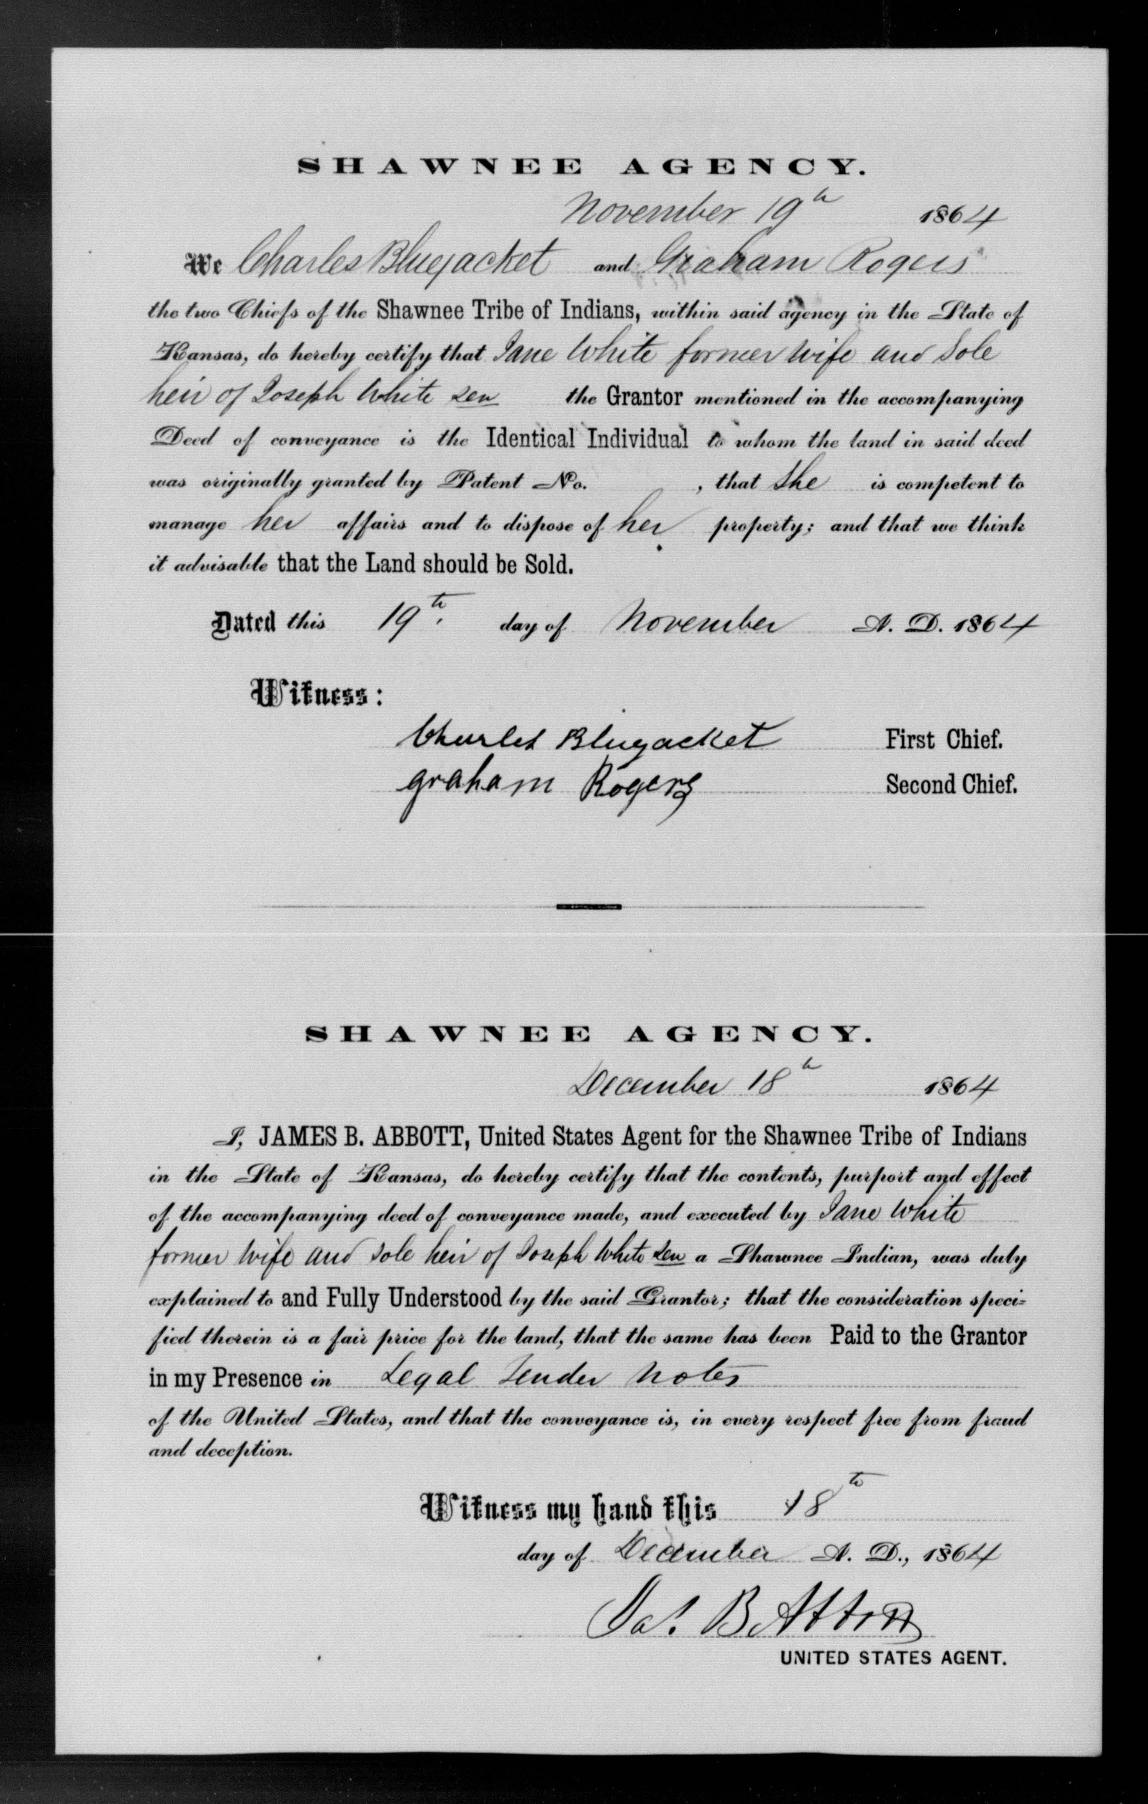 SHAWNEE AGENCY.
November 19th 1864
We Charles Bluejacket and Graham Rogers
the two Chiefs of the Shawnee Tribe of Indians, within said agency in the State of
Kansas, do hereby certify that Jane White former wife and Sole
heir of Joseph White sen the Grantor mentioned in the accompanying
Deed of conveyance is the Identical Individual to whom the land in said deed
was originally granted by Patent No. , that She is competent to
manage her affairs and to dispose of her property; and that we think
it advisable that the Land should be Sold.
Dated this 19th. day of November A. D. 1864
Witness:
Charles Bluejacket First Chief.
graham Rogers Second Chief.
SHAWNEE AGENCY.
December 18th 1864
I, JAMES B. ABBOTT, United States Agent for the Shawnee Tribe of Indians
in the State of Kansas, do hereby certify that the contents, purport and effect
of the accompanying deed of conveyance made, and executed by Jane White
former Wife and sole heir of Joseph White sen a Shawnee Indian, was duly
explained to and Fully Understood by the said Grantor; that the consideration speci-
fied therein is a fair price for the land, that the same has been Paid to the Grantor
in my Presence in Legal Tender Notes
of the United States, and that the conveyance is, in every respect free from fraud
and deception.
Witness my hand this 18th
day of December A. D., 1864
Jas. B. Abbott
UNITED STATES AGENT.